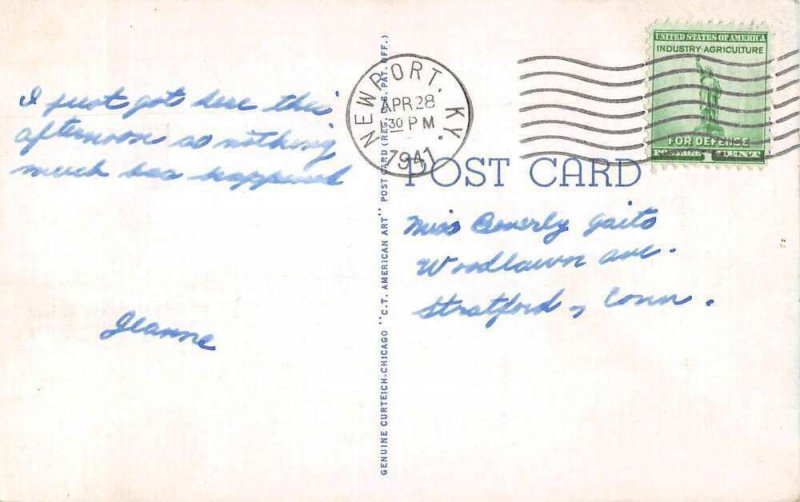 I just got here this
afternoon so nothing
much has happened
Jeanne
GENUINE CURTEICH-CHICAGO "C.T. AMERICAN ART" POST CARD (REG. U.S. PAT. OFF.)
NEWPORT, KY.
APR 28
30 PM
1941
POST CARD
UNITED STATES OF AMERICA
INDUSTRY·AGRICULTURE
FOR DEFENSE
POSTAGE 1 CENT
Miss Beverly Gaito
Woodlawn ave.
Stratford, Conn.